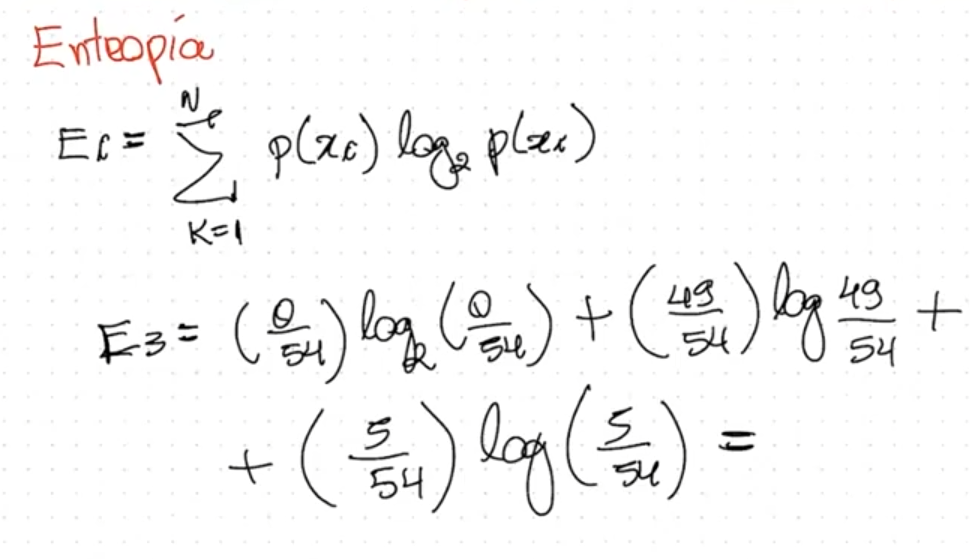 Entropía
Ei = ∑_{K=1}^{Nc} p(xi) log₂ p(xi)
E3 = (0/54) log₂ (0/54) + (49/54) log 49/54 +
+ (5/54) log (5/54) =